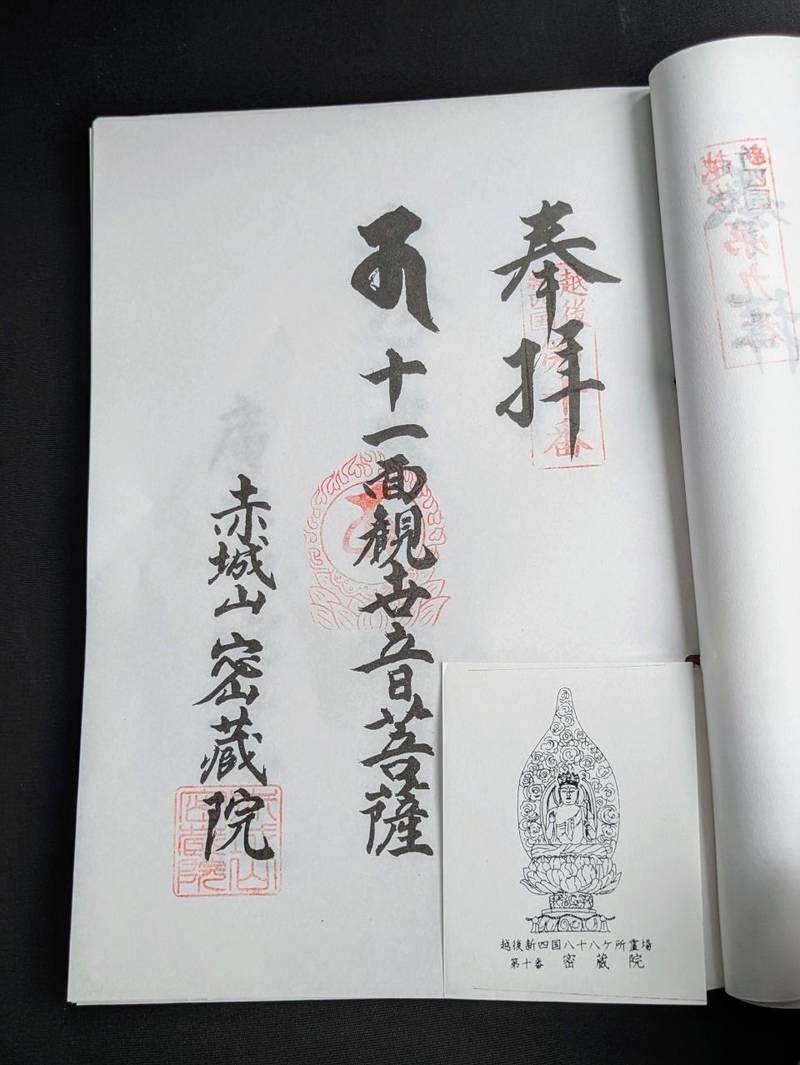 奉拝
越後
新四国
第十番
十一面観世音菩薩
赤城山密蔵院
越後新四国八十八ケ所霊場
第十番 密蔵院
新四国
越後
第九番